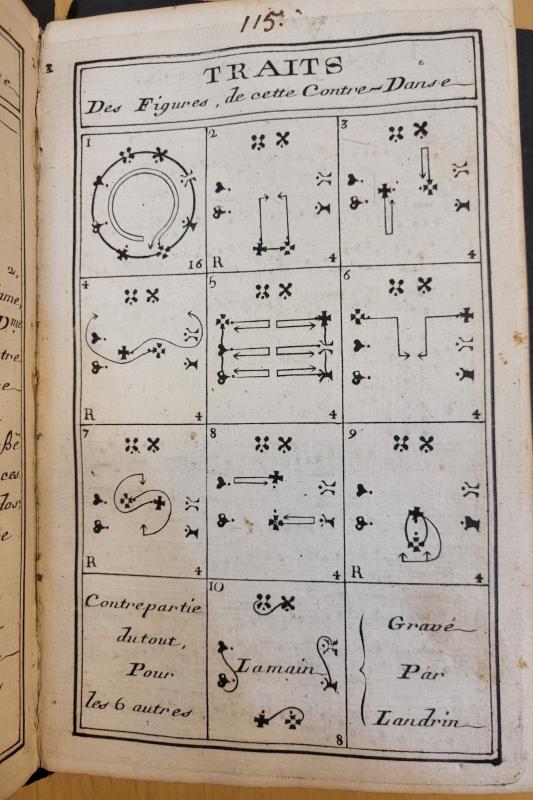 115.
3.
TRAITS
Des Figures, de cette Contre-Danse
1
16
2
R
4
3
4
4
R
4
5
4
6
4
7
R
4
8
4
9
R
4
Contrepartie
du tout,
Pour
les 6 autres
10
Lamain
8
Gravé
Par
Landrin
2,
ame,
Dme
tre
e
Bé
ces
dos,
e